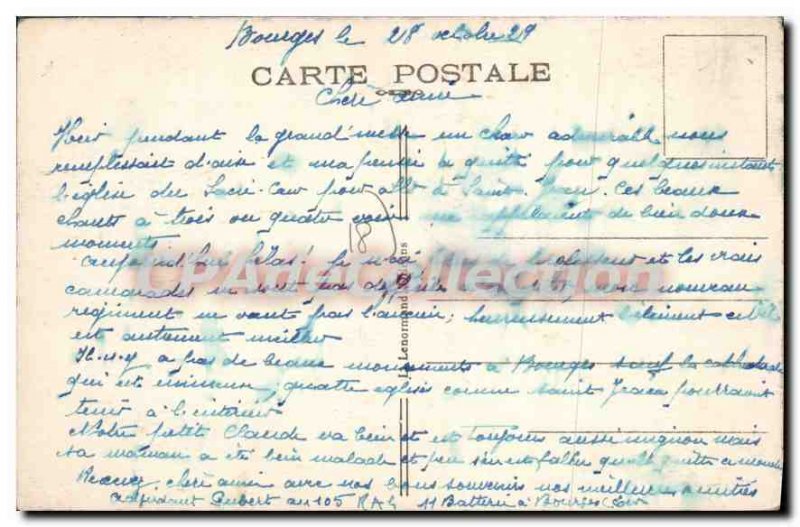 Bourges le 28 octobre 29
CARTE POSTALE
Chère amie
Hier pendant la grand'messe un chœur admirable nous
remplissait d'aise et ma pensée a quitté pour quelques instants
l'église du Sacré-Cœur pour aller à Saint-Jean. Ces beaux
chants à trois ou quatre voix me rappelaient de bien doux
moments
aujourd'hui hélas! et les vrais
camarades ne sont pas notre nouveau
régiment ne vaut pas l'ancien; heureusement l'élément civil
est autrement meilleur
Il n'y a pas de beaux monuments à Bourges sauf la cathédrale
qui est immense; quatre églises comme Saint pourraient
tenir à l'intérieur
Notre petit Claude va bien et est toujours aussi mignon mais
sa maman a été bien malade et peu s'en est fallu qu'elle quitte ce monde
Recevez chère amie avec nos bons souvenirs nos meilleures amitiés
adjudant au 105 R A L 11 Batterie à Bourges (Cher
18
Lenormand
CPAdeCollection.com